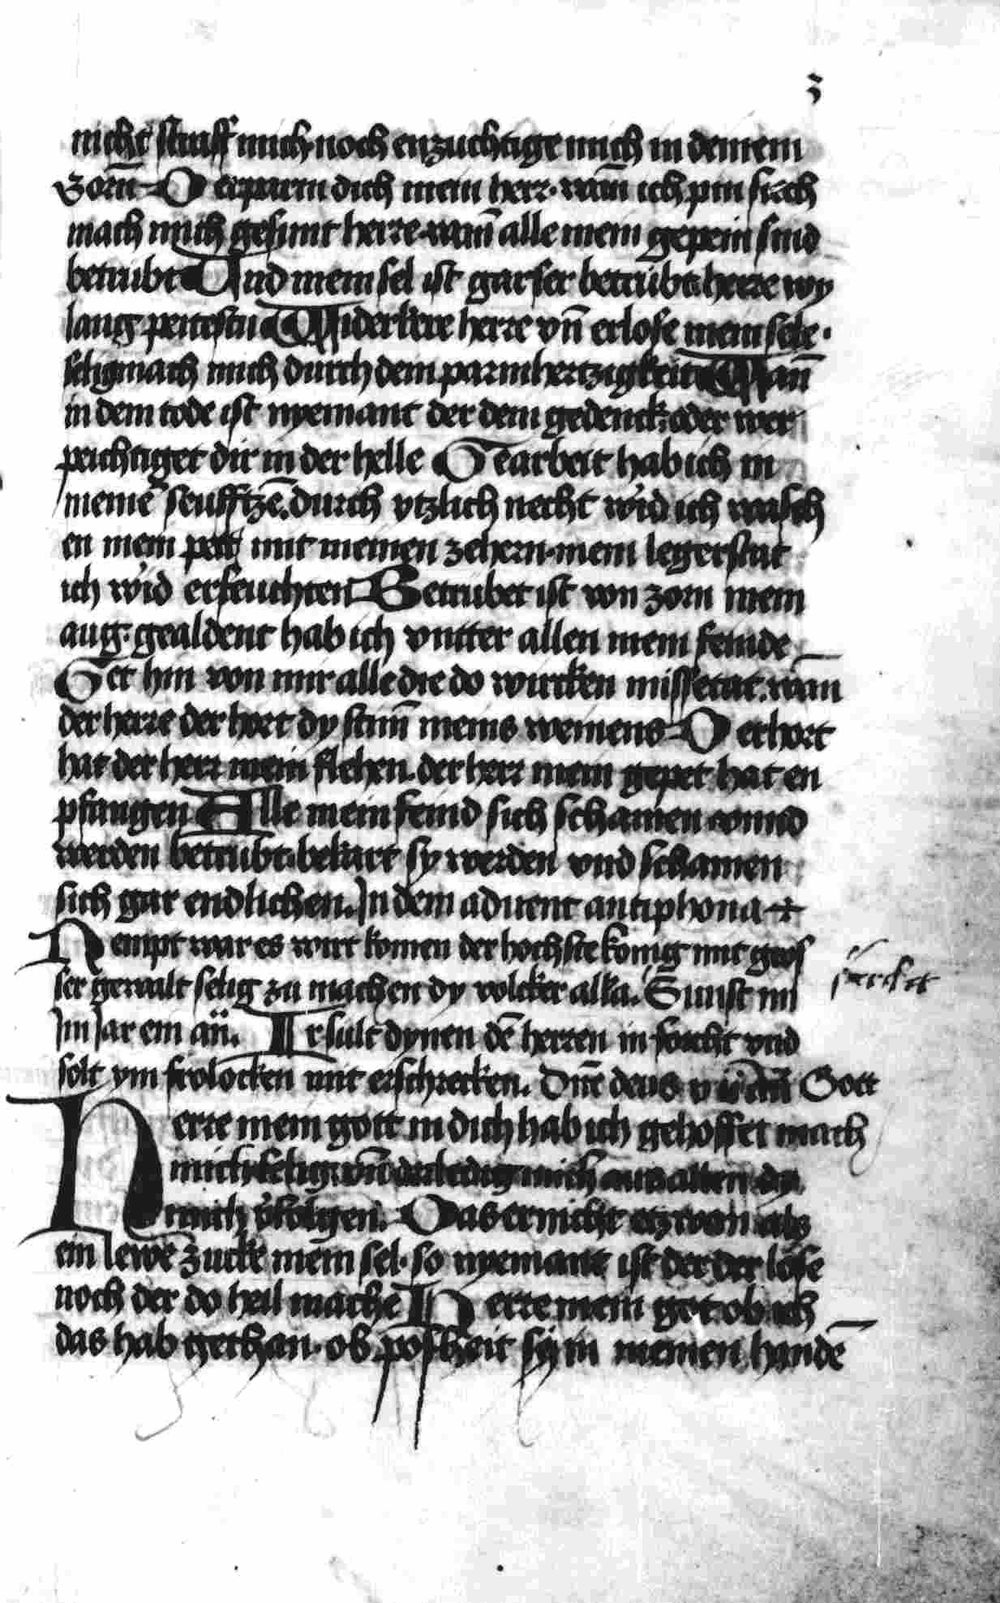 3
nicht straff mich noch enzuchtige mich in deinem
Zorn̄ O erparm dich mein herr · wan̄ ich pin sich
mach mich gesunt herre · wan̄ alle mein gepein sind
betrubt Und mein sel ist gar ser betrubt · herre wy
lang peitestu Widerkere herre vn̄ erlose mein sele ·
seligmach mich durch dein parmhertzigkeit Wan̄
in dem tode ist nyemant der dein gedenck · oder wer
peichtiget dir in der helle Gearbeit hab ich in
meinē seufftzē · durch ytzlich necht wi'd ich wasch
en mein pett mit meinen zehern · mein legerstat
ich wi'd erfeuchten Betrubet ist von zorn mein
aug · gealdent hab ich vntter allen mein feinde
Get hin von mir alle die do wircken missetat · wan̄
der herre der hort dy stim̄ meins weinens O erhort
hat der herr mein flehen · der herr mein gepet hat en
pfangen Alle mein feind sich schamen vnnd
werden betrubt · bekart sy werden vnd schamen
sich gar endlichen. In dem aduent antiphona
Nempt war es wirt komen der hochste konig mit gros
ser gewalt selig zu machen dy volcker alla. Sunst im
Im Jar ein an̄. Ir sult dynen dē herren in forcht vnd
solt ym frolocken mit erschrecken. Dn̄e deus Gott
Herre mein gott in dich hab ich gehoffet mach
mich selig vn̄ derledig mich aus allen dy
mich v'folgen. Das er nicht etzwan als
ein lewe zucke mein sel · so nyemant ist der der lose
noch der do heil mache Herre mein got ob ich
das hab gethan · ob poszheit sy in meinen handē